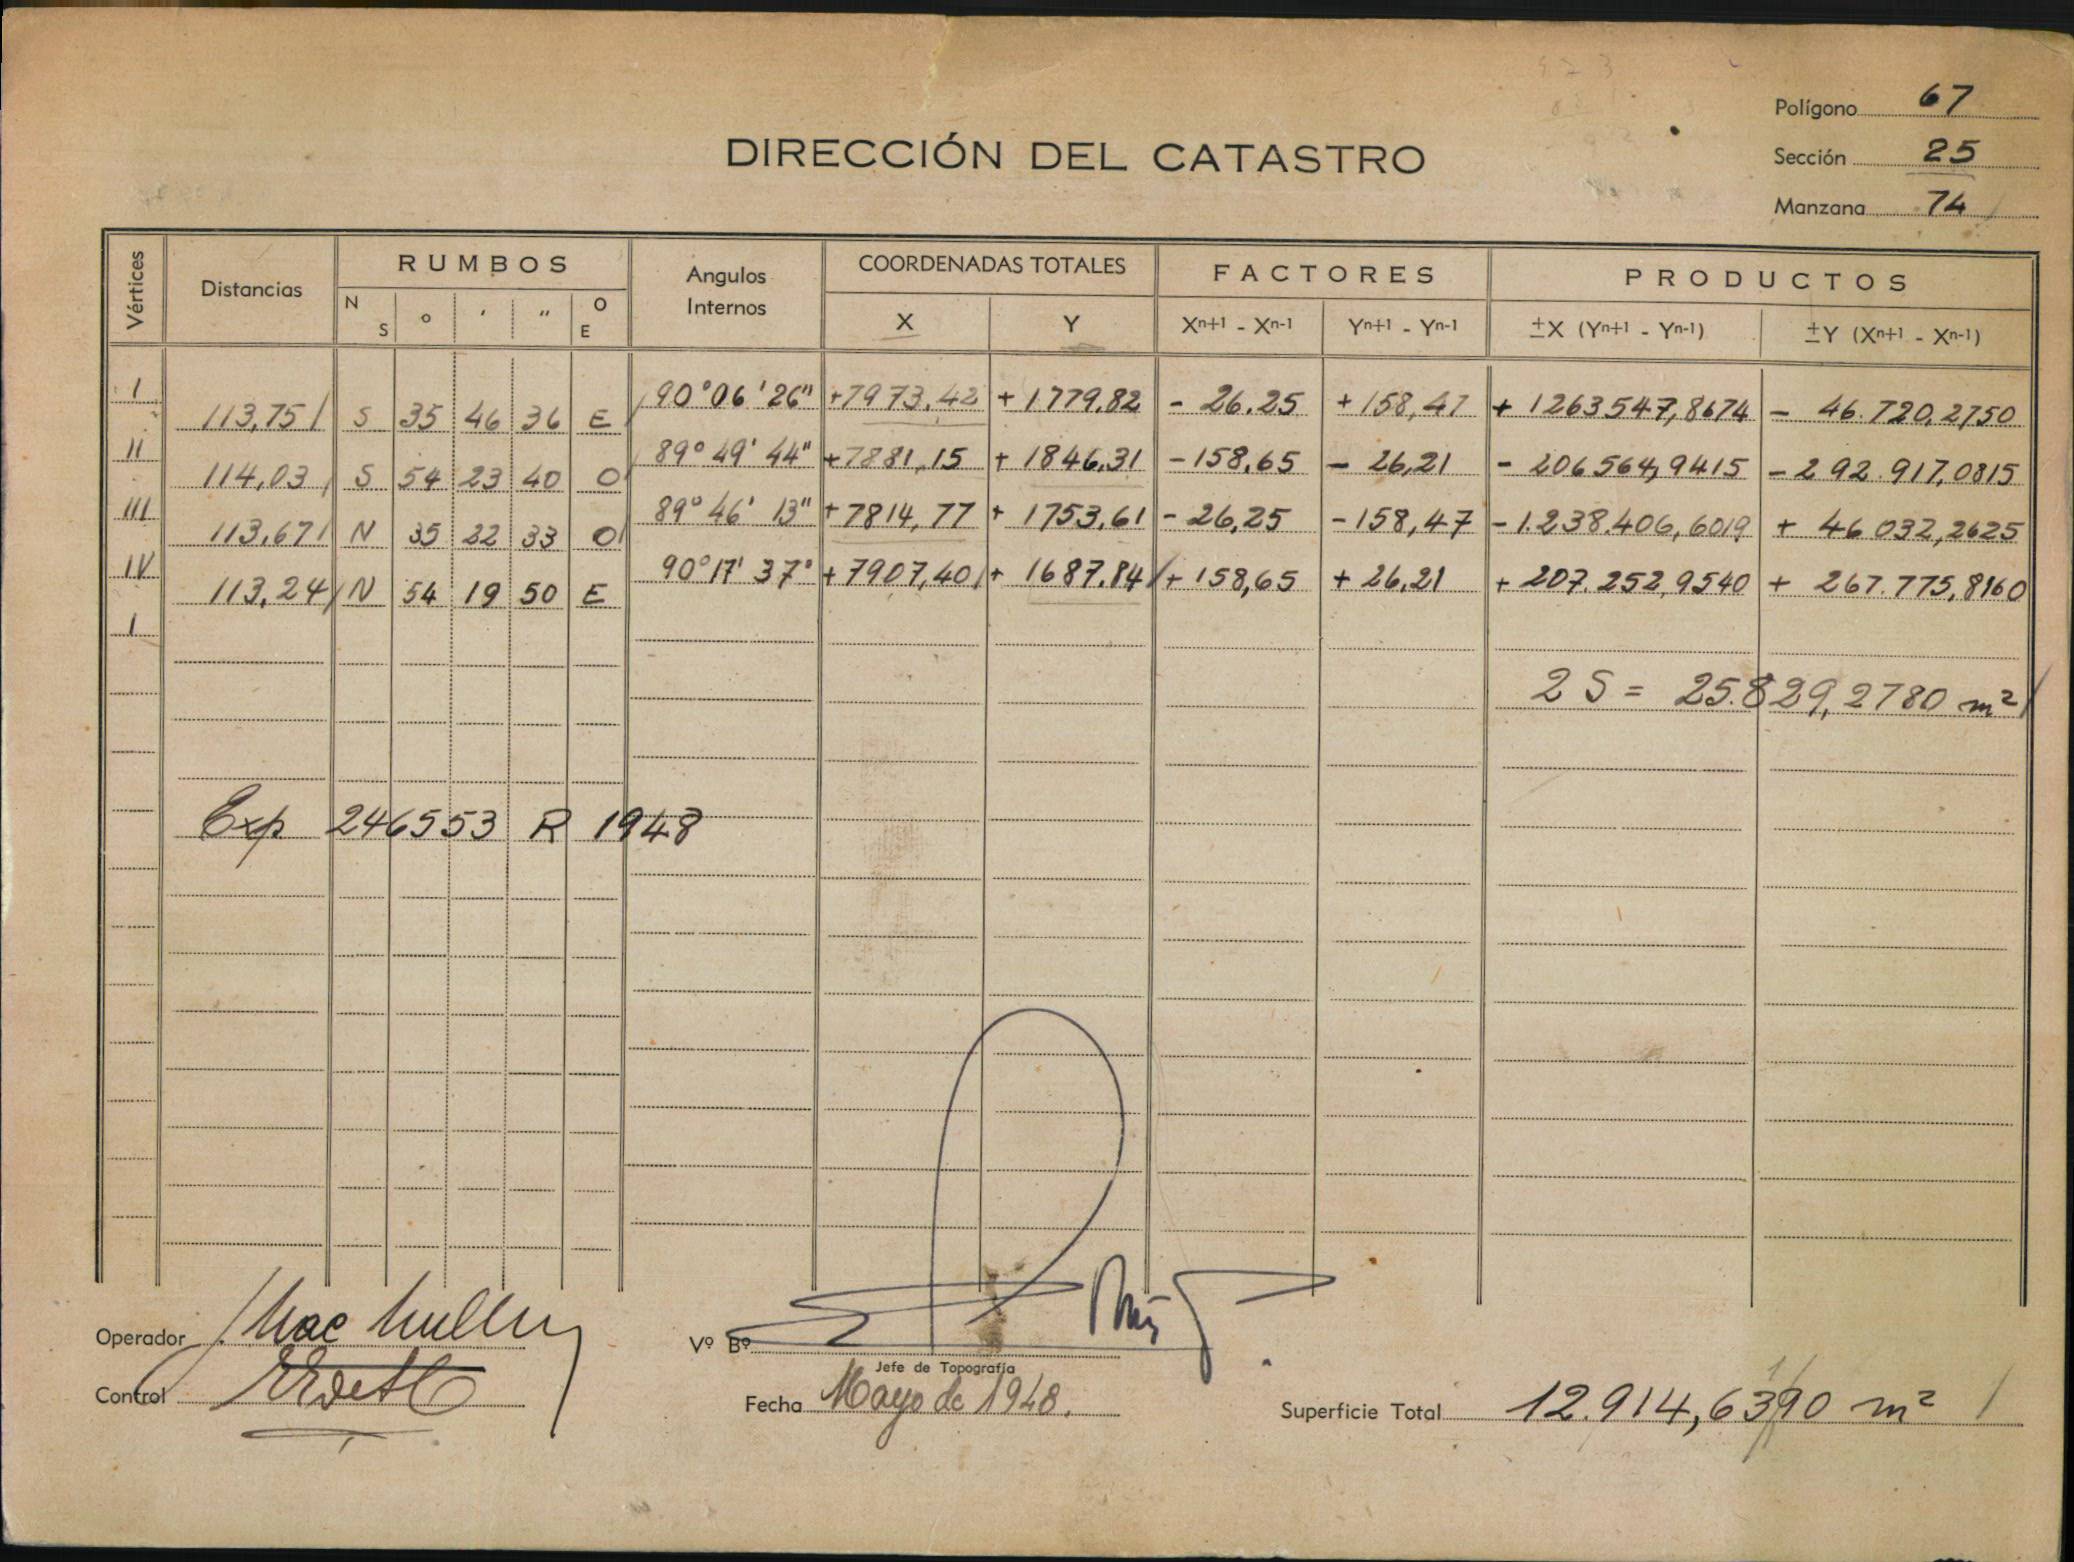 Polígono 67
DIRECCIÓN DEL CATASTRO
Sección 25
Manzana 74
Vértices Distancias RUMBOS Angulos Internos COORDENADAS TOTALES FACTORES PRODUCTOS
N S ° ' " O E X Y Xn+1 - Xn-1 Yn+1 - Yn-1 ±X (Yn+1 - Yn-1) ±Y (Xn+1 - Xn-1)
I 90°06'26" +7973,42 + 1779,82 - 26,25 + 158,47 + 1263547,8674 - 46.720,2750
113,75 S 35 46 36 E
II 89°49'44" +7881,15 + 1846,31 -158,65 - 26,21 - 206564,9415 -292.917,0815
114,03 S 54 23 40 O
III 89°46' 13" +7814,77 + 1753,61 - 26,25 -158,47 -1.238.406,6019 + 46 032,2625
113,67 N 35 22 33 O
IV 90°17' 37" + 7907,40 + 1687,84 + 158,65 + 26,21 + 207.252,9540 + 267.775,8160
113,24 N 54 19 50 E
I
2 S = 25.829,2780 m²
Exp 246553 R 1948
Operador Mac Mulley
Vº Bº
Jefe de Topografía
Control
Fecha Mayo de 1948.
Superficie Total 12.914,6390 m²